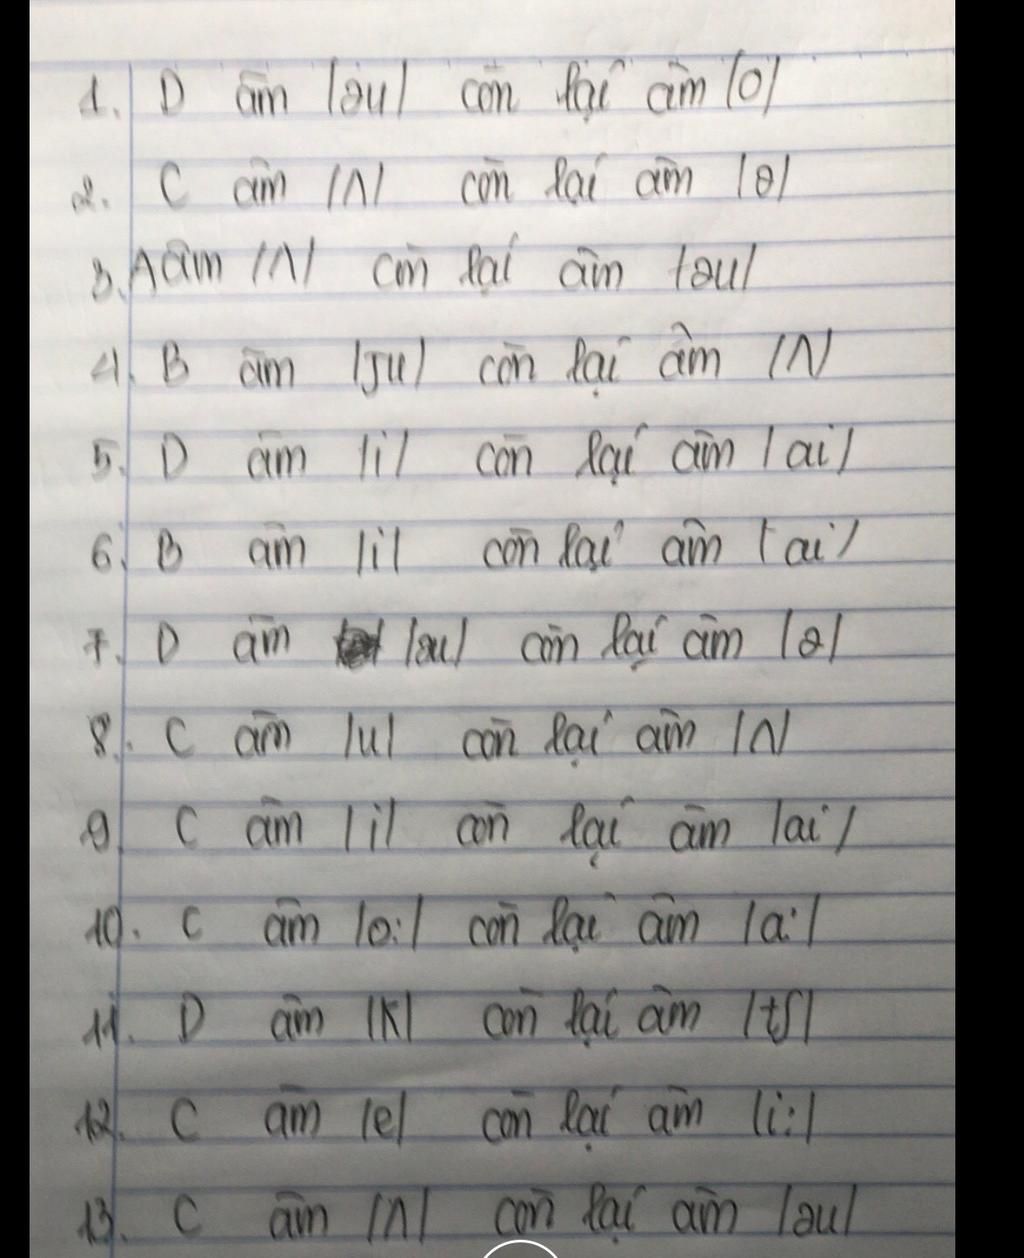 1. D âm /əu/ còn lại âm /o/
2. C âm /ʌ/ còn lại âm /ə/
3. A âm /ʌ/ còn lại âm /əu/
4. B âm /ju/ còn lại âm /ʌ/
5. D âm /i/ còn lại âm /ai/
6. B âm /i/ còn lại âm /ai/
7. D âm /əu/ còn lại âm /ə/
8. C âm /u/ còn lại âm /ʌ/
9 C âm /i/ còn lại âm /ai/
10. C âm /o:/ còn lại âm /a:/
11. D âm /k/ còn lại âm /tʃ/
12. C âm /e/ còn lại âm /i:/
13. C âm /ʌ/ còn lại âm /əu/